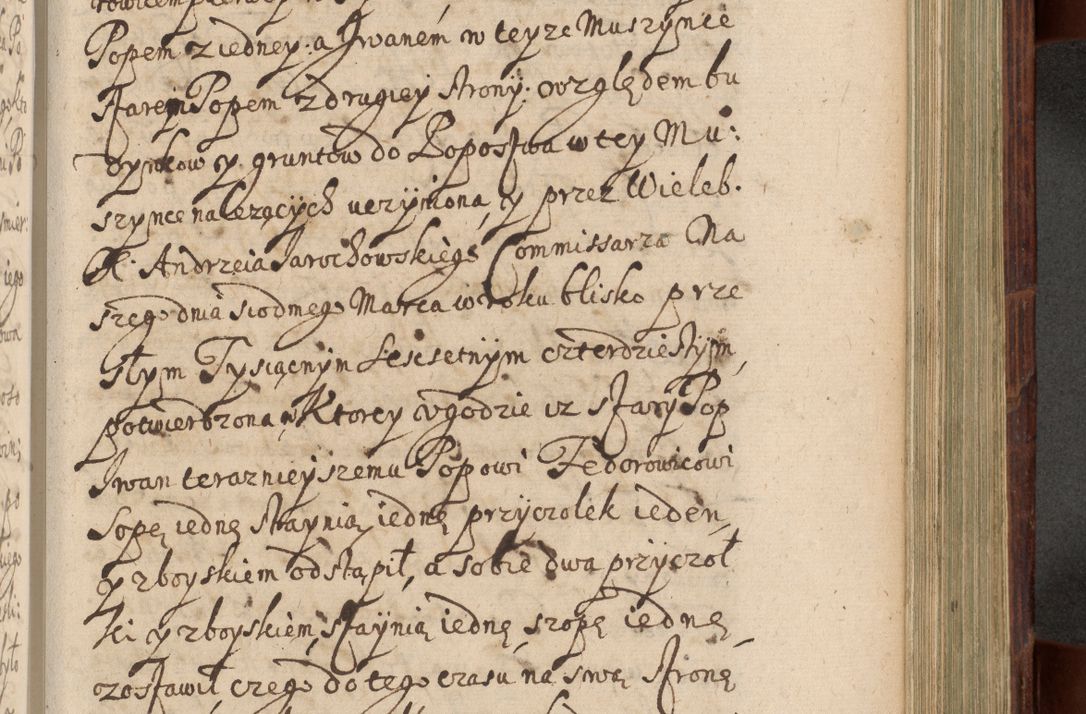 Popem z iedney: a Iwanem w teyze Muszynce
starem Popem z drugiey strony: względem bu
dynkow y. gruntow do Popostwa w tey Mu:
szynce nalezących uczyniona, y przez Wieleb.
X. Andrzeia Iarochowskiego Commissarza Na
szego dnia siodmego Marca w roku blisko prze
słym Tysiącnym sescsetnym czterdziestym,
potwierdzona, w Ktorey ugodzie iz stary Pop
Iwan teraznieyszemu Popowi Fedorowicowi
sopę iednę staynią iednę przyczolek ieden,
y zboyskiem odstąpił, a sobie dwa przyczoł
ki y zboyskiem, staynią iednę szopę iednę,
ozostawił czego do tego czasu na swą stronę